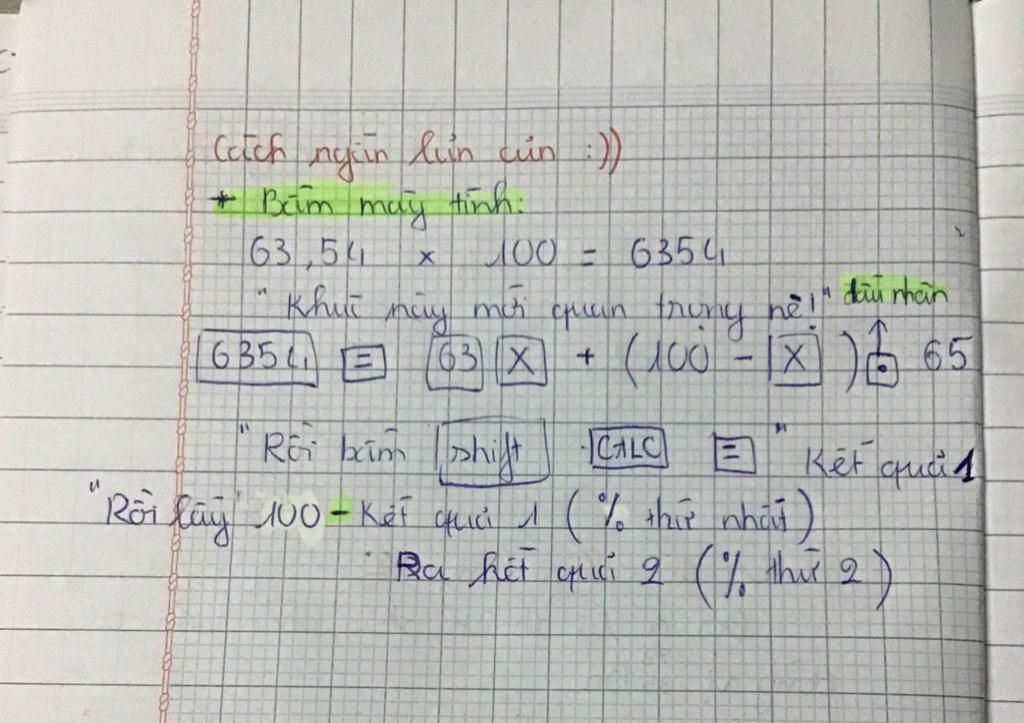 Cách ngắn lủn củn :))
+ Bấm máy tính:
63,54 x 100 = 6354
"Khúc này mới quan trọng nè!" dấu nhân
6354 = 63 X + (100 - X) . 65
"Rồi bấm shift CALC =" Kết quả 1
"Rồi lấy" 100 - Kết quả 1 (% thứ nhất)
Ra kết quả 2 (% thứ 2)